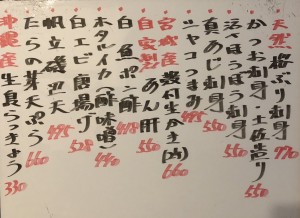 天然 ぶり刺身 770
かつお刺身・土佐造り 550
活〆ほうぼう刺身 550
真あじ刺身 550
シャコつまみ 495
宮城産 殻付生かき 660
自家製 あん肝 550
白魚ポン酢 418
ホタルイカ(酢味噌) 440
白エビ唐揚げ 528
帆立磯辺天 495
たらの芽天ぷら 660
沖縄産 生島らっきょう 330